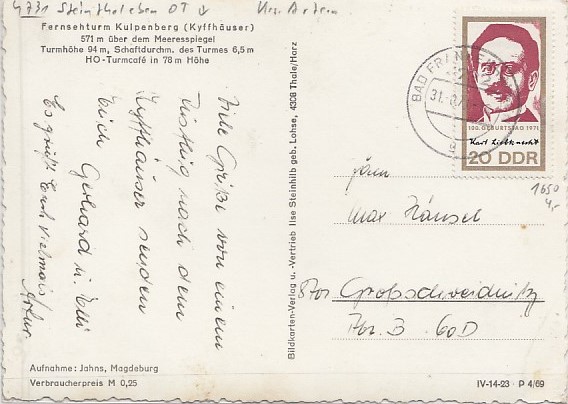 4731 Steinthaleben OT
Krs. Artern
Fernsehturm Kulpenberg (Kyffhäuser)
571 m über dem Meeresspiegel
Turmhöhe 94 m, Schaftdurchm. des Turmes 6,5 m
HO-Turmcafé in 78 m Höhe
Viele Grüße von einem
Ausflug nach dem
Kyffhäuser senden
Euch Gerhard u. Elli
Es grüßt Euch vielmals
Artur.
Aufnahme: Jahns, Magdeburg
Verbraucherpreis M 0,25
Bildkarten-Verlag u. -Vertrieb Ilse Steinhilb geb. Lohse, 4308 Thale/Harz
BAD FRAN
31.
100. GEBURTSTAG 1971
Karl Liebknecht
20 DDR
1650
4,-
Max Hänsel
Großschweidnitz
60D
IV-14-23 · P 4/69